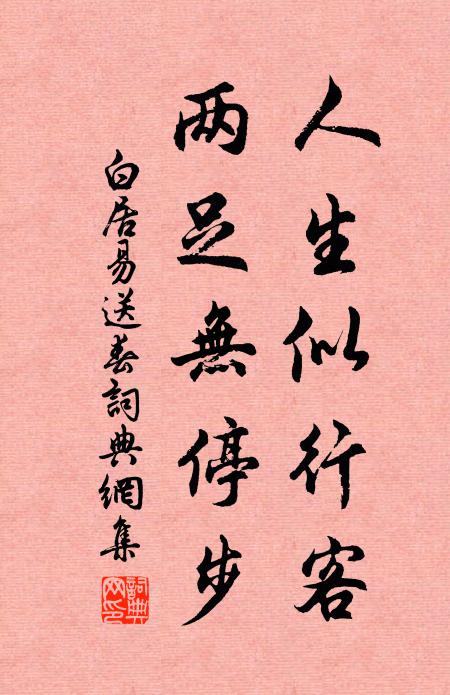 人生似行客
两足無停步
白居易送春詞典網集
詞典網印